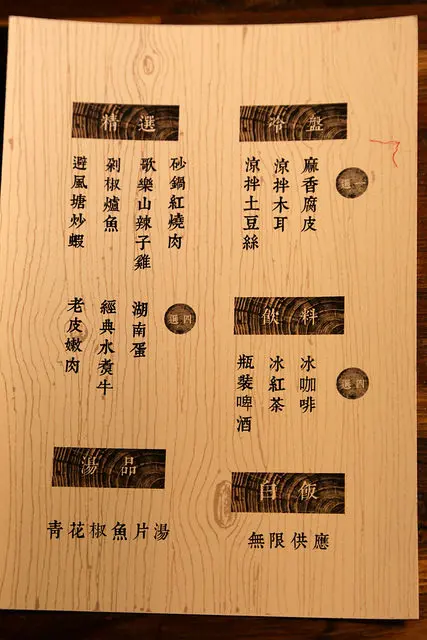 冷盤
選一
麻香腐皮
涼拌木耳
涼拌土豆絲
飲料
選四
冰咖啡
冰紅茶
瓶裝啤酒
白飯
無限供應
精選
砂鍋紅燒肉
歌樂山辣子雞
剁椒爐魚
避風塘炒蝦
選四
湖南蛋
經典水煑牛
老皮嫩肉
湯品
青花椒魚片湯